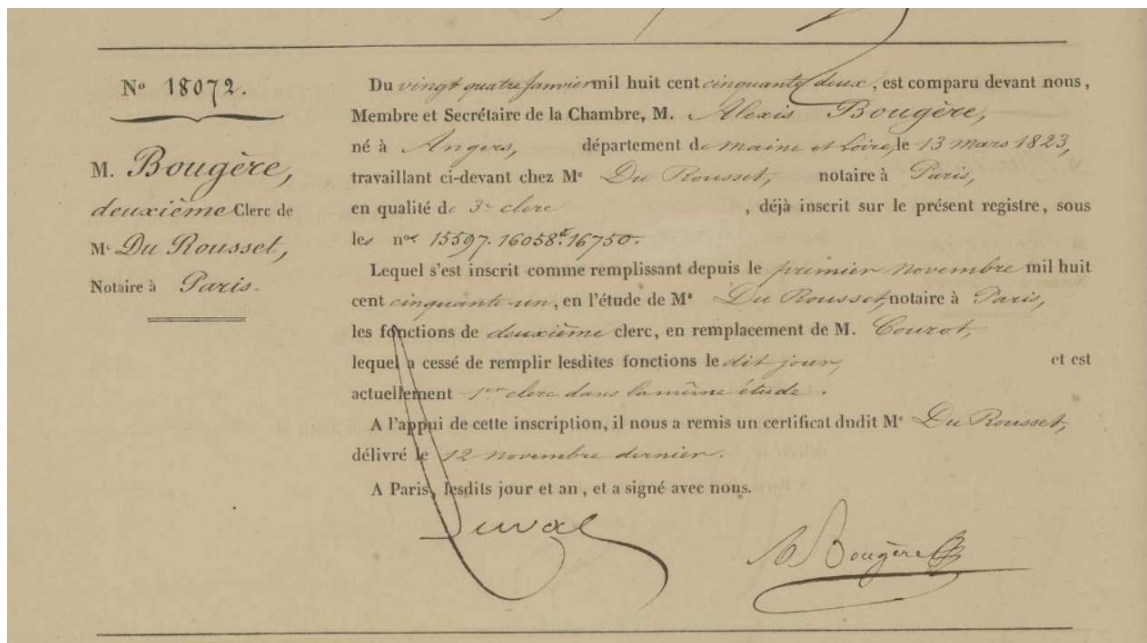 Nº 18072.
M. Bougère,
deuxième Clerc de
Mᵉ Du Rousset,
Notaire à Paris.
Du vingt quatre Janvier mil huit cent cinquante deux, est comparu devant nous,
Membre et Secrétaire de la Chambre, M. Alexis Bougère,
né à Angers, département de Maine et Loire, le 13 mars 1823,
travaillant ci-devant chez Mᵉ Du Rousset, notaire à Paris,
en qualité de 3ᵉ clerc , déjà inscrit sur le présent registre, sous
les nᵒˢ 15597. 16058 et 16750.
Lequel s'est inscrit comme remplissant depuis le premier novembre mil huit
cent cinquante-un, en l'étude de Mᵉ Du Rousset, notaire à Paris,
les fonctions de deuxième clerc, en remplacement de M. Courot,
lequel a cessé de remplir lesdites fonctions le dit jour, et est
actuellement 1ᵉʳ clerc dans la même étude.
A l'appui de cette inscription, il nous a remis un certificat dudit Mᵉ Du Rousset,
délivré le 12 novembre dernier.
A Paris, lesdits jour et an, et a signé avec nous.
Duval
A Bougère